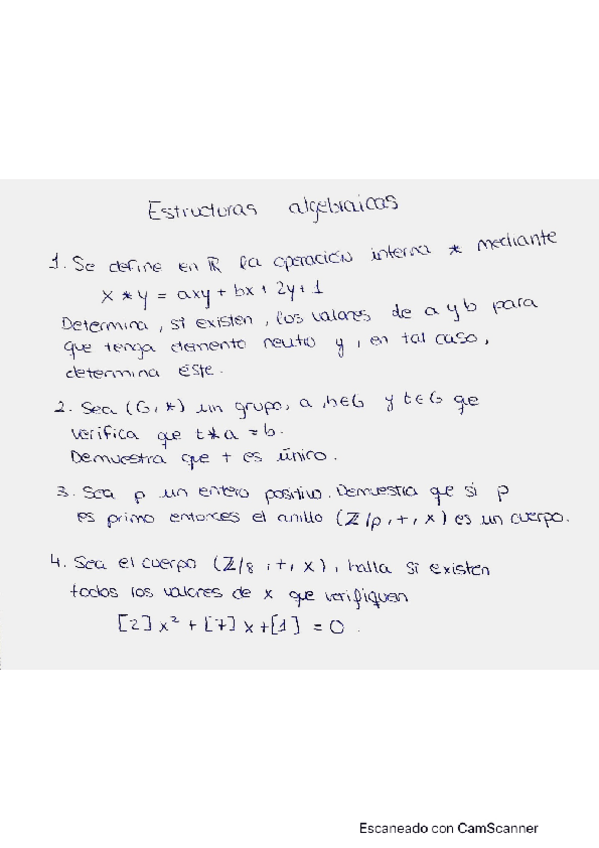 Estructuras algebraicas
1. Se define en ℝ la operación interna * mediante
x * y = axy + bx + 2y + 1
Determina, si existen, los valores de a y b para
que tenga elemento neutro y, en tal caso,
determina éste.
2. Sea (G, *) un grupo, a, b ∈ G y t ∈ G que
verifica que t * a = b.
Demuestra que t es único.
3. Sea p un entero positivo. Demuestra que si p
es primo entonces el anillo (ℤ/p, +, x) es un cuerpo.
4. Sea el cuerpo (ℤ/8, +, x), halla si existen
todos los valores de x que verifiquen
[2]x² + [7]x + [1] = 0.
Escaneado con CamScanner